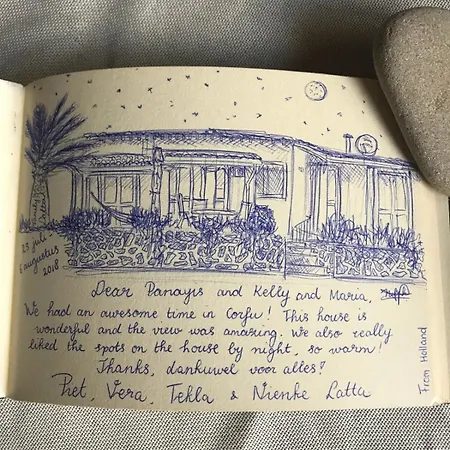 23 juli
augustus
2018
Dear Panayis and Kelly and Maria,
We had an awesome time in Corfu! This house is
wonderful and the view was amazing. We also really
liked the spots on the house by night, so warm!
Thanks, dankuwel voor alles!
Piet, Vera, Tekla & Nienke Latta
From Holland